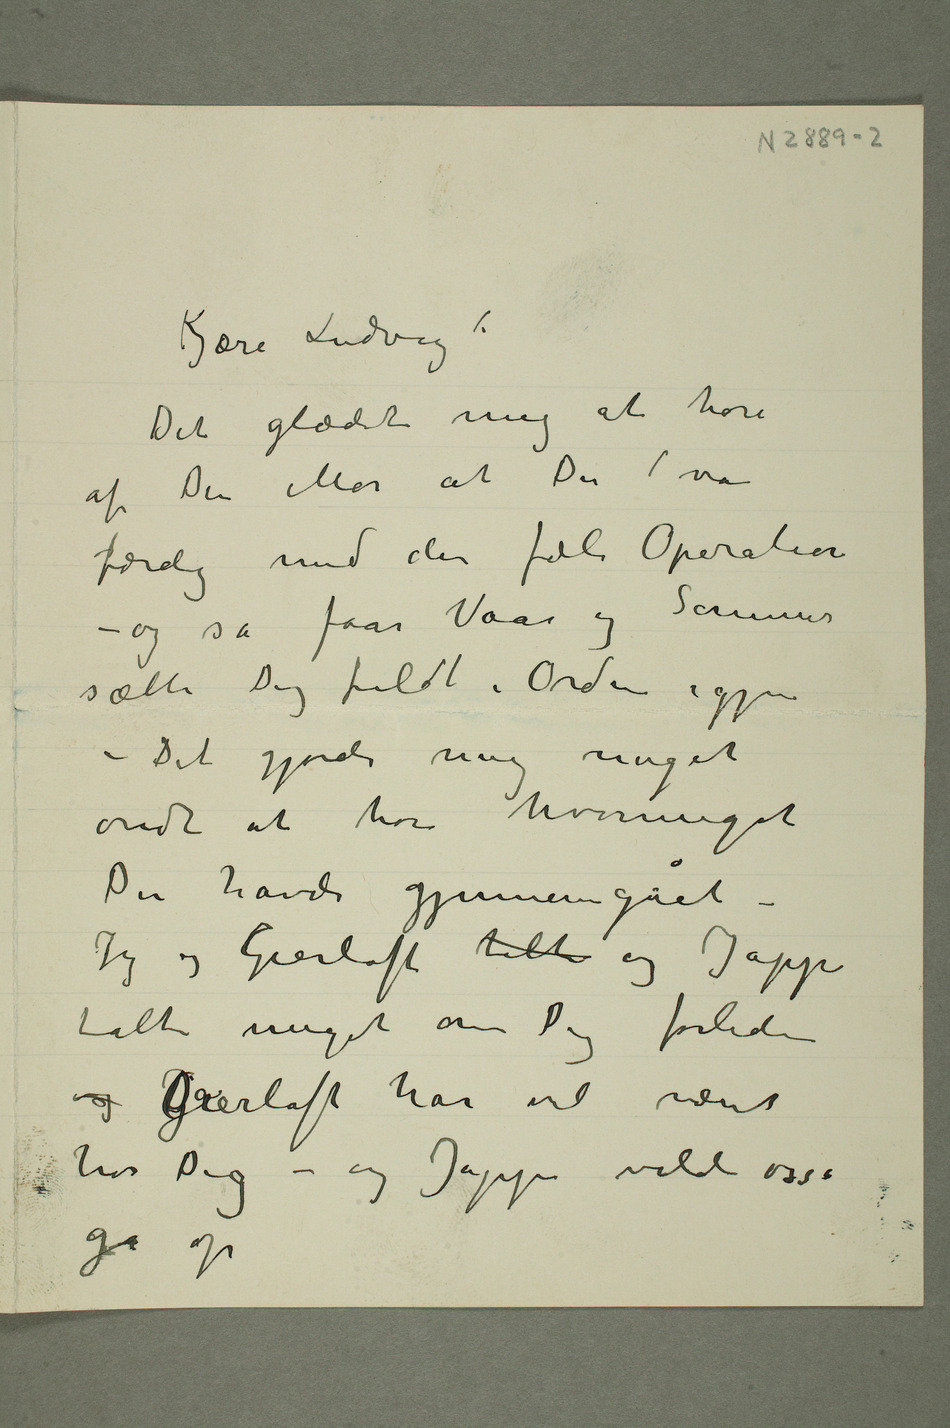 N 2889-2
Kjære Ludvig!
Det glædet mig at høre
af Din Mor at Du var
færdig med den fæle Operation
– og så faar Vaar og Sommer
sætte Dig fuldt i Orden igjen
– Det gjorde mig meget
ondt at høre hvormeget
Du havde gjennemgået –
Jeg og Gierløff talte og Jappe
talte meget om Dig forleden
og Gierløff har vel været
hos Dig – og Jappe vilde osså
gå op